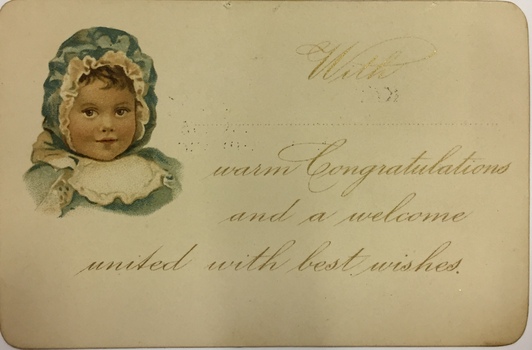 With
warm Congratulations
and a welcome
united with best wishes.